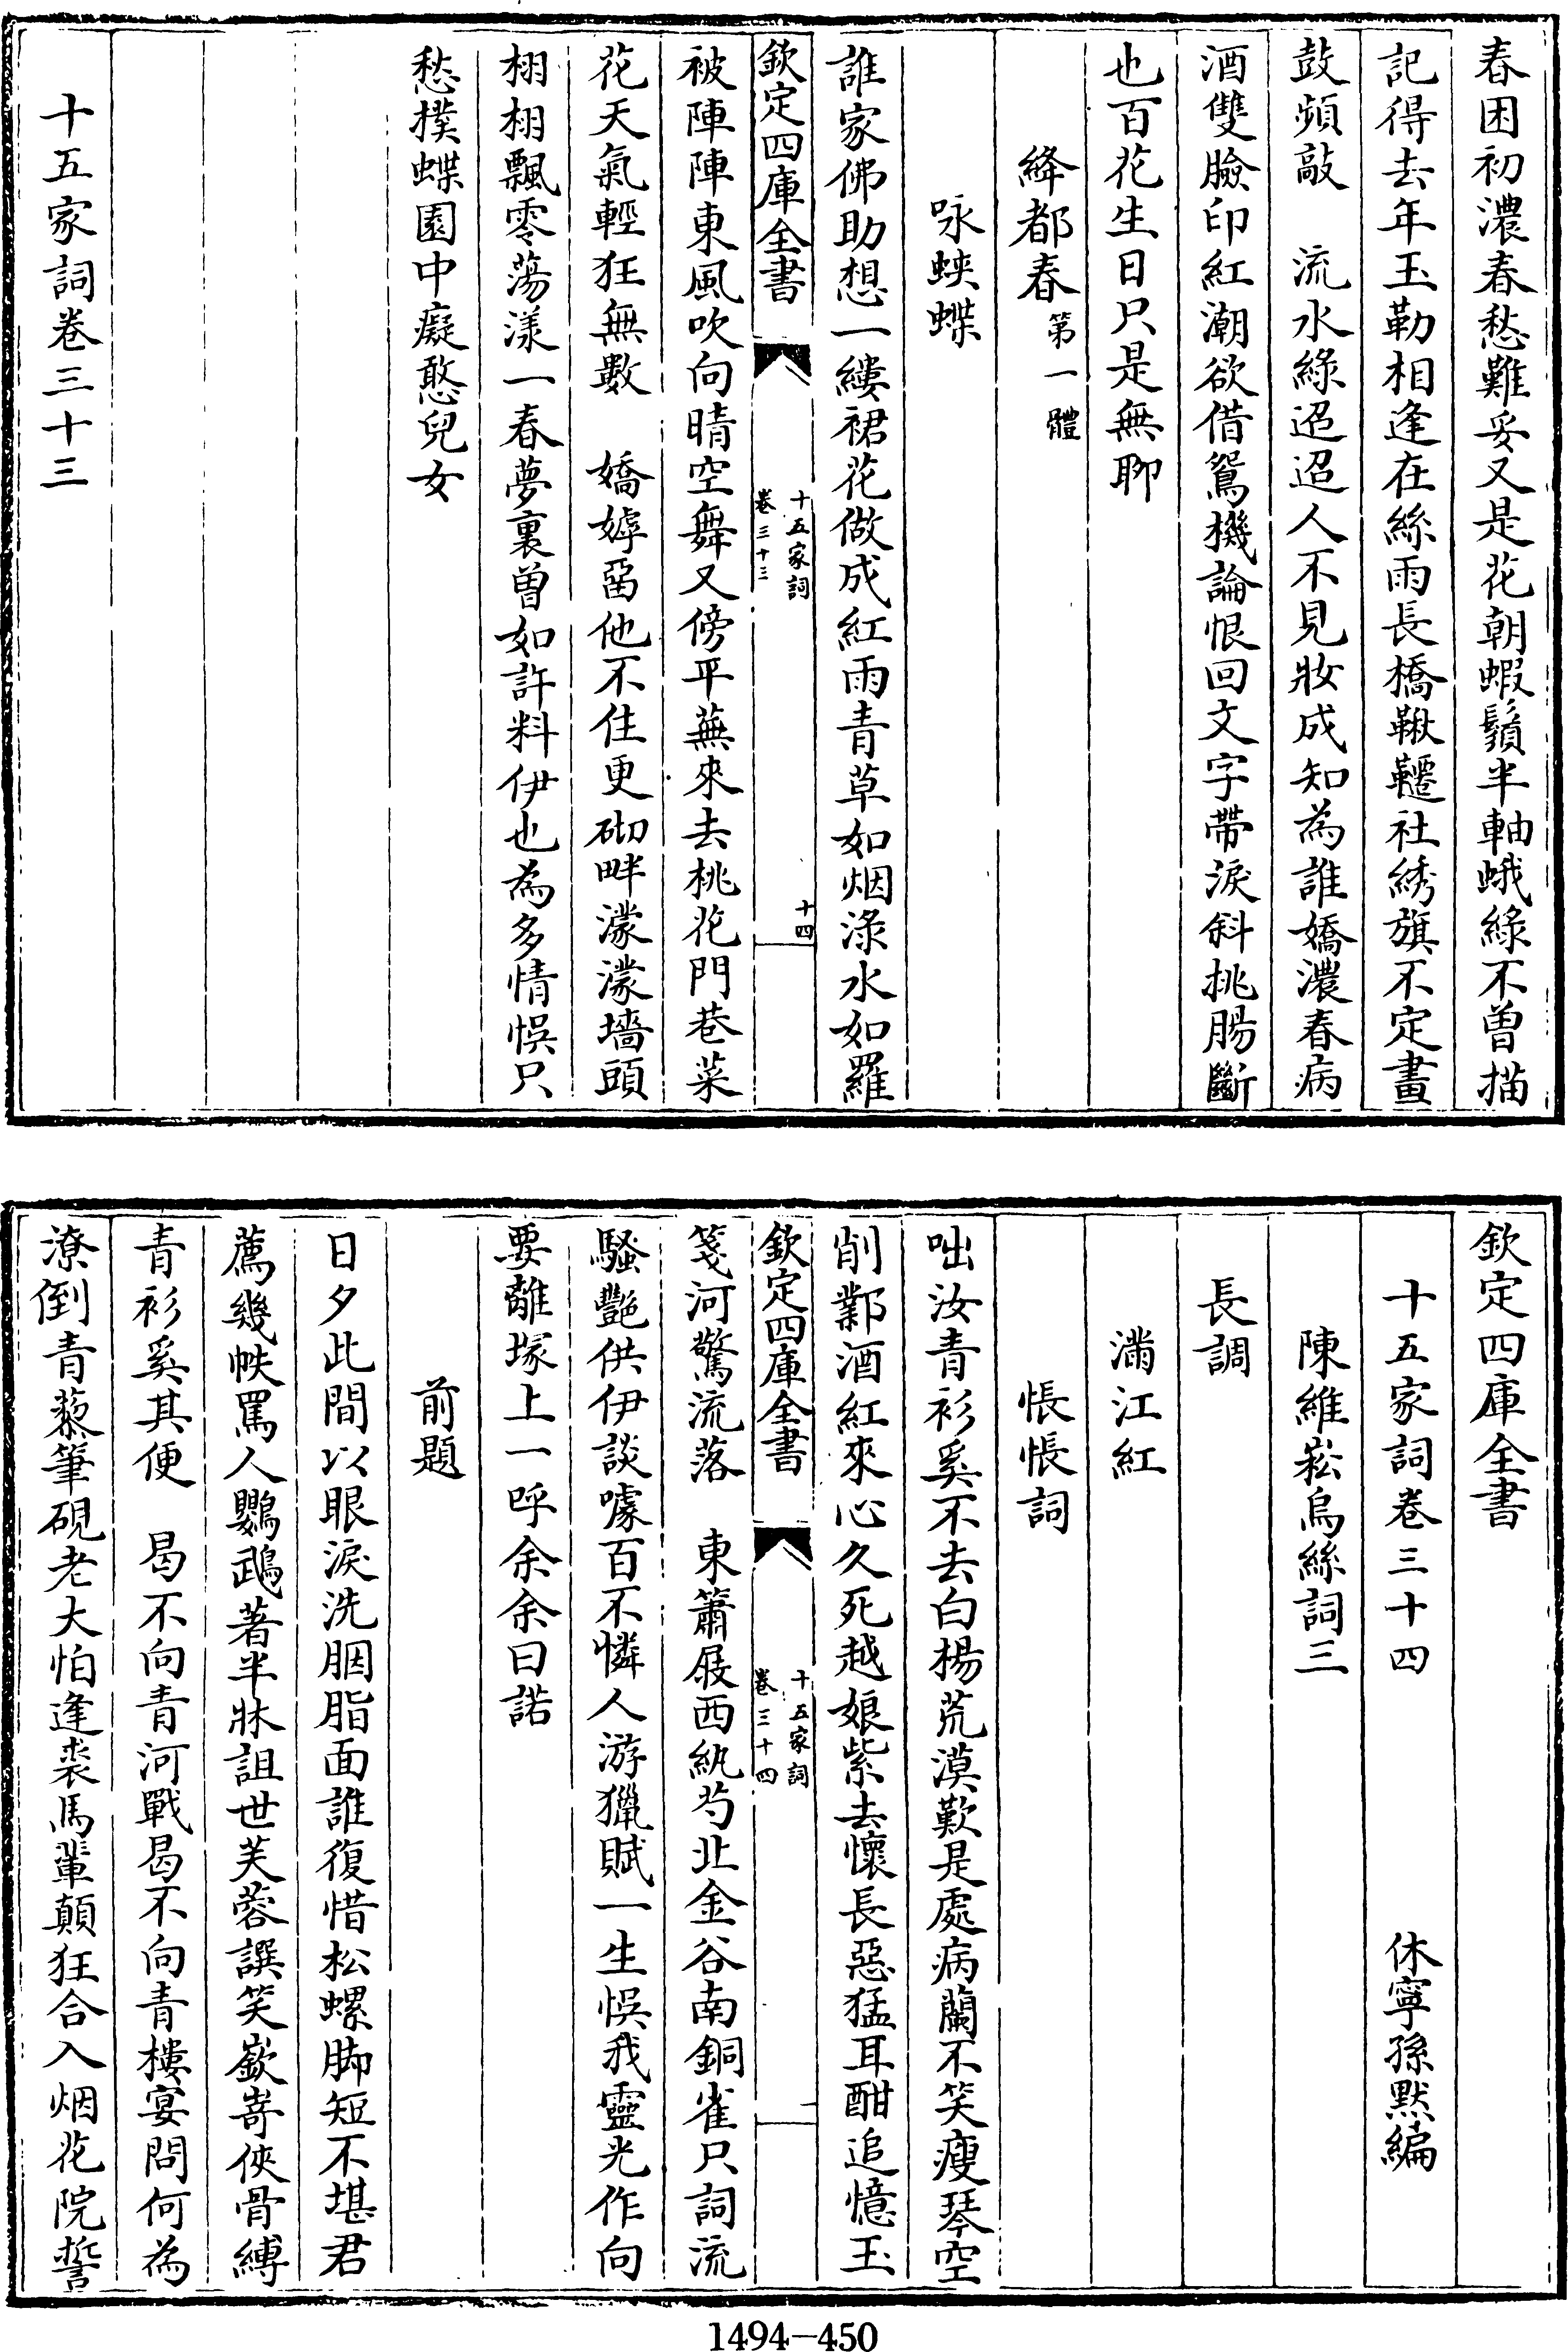 春困初濃春愁難妥又是花朝蝦鬚半軸蛾綠不曾描
記得去年玉勒相逢在絲雨長橋鞦韆社綉旗不定畫
鼓頻敲　流水綠迢迢人不見妝成知為誰嬌濃春病
酒雙臉印紅潮欲借鴛機論恨回文字帶淚斜挑腸斷
也百花生日只是無聊
絳都春第一體
咏蛺蝶
誰家佛助想一縷裙花做成紅雨青草如烟淥水如羅
欽定四庫全書
十五家詞
卷三十三
十四
被陣陣東風吹向晴空舞又傍平蕪來去桃花門巷菜
花天氣輕狂無數　嬌嫭畱他不住更砌畔濛濛墻頭
栩栩飄零蕩漾一春夢裏曾如許料伊也為多情悞只
愁撲蝶園中癡憨兒女
十五家詞卷三十三
欽定四庫全書
十五家詞卷三十四
休寧孫默編
陳維崧烏絲詞三
長調
滿江紅
悵悵詞
咄汝青衫奚不去白楊荒漠歎是處病蘭不笑瘦琴空
削鄴酒紅來心久死越娘紫去懷長惡猛耳酣追憶玉
欽定四庫全書
十五家詞
卷三十四
一
箋河驚流落　東簫屐西紈芍北金谷南銅雀只詞流
騷艷供伊談噱百不憐人游獵賦一生悞我靈光作向
要離塚上一呼余余曰諾
前題
日夕此間以眼淚洗胭脂面誰復惜松螺脚短不堪君
薦幾帙罵人鸚鵡著半牀詛世芙蓉譔笑嶔嵜俠骨縛
青衫奚其便　曷不向青河戰曷不向青樓宴問何為
潦倒青藜筆硯老大怕逢裘馬輩顛狂合入烟花院誓
1494-450